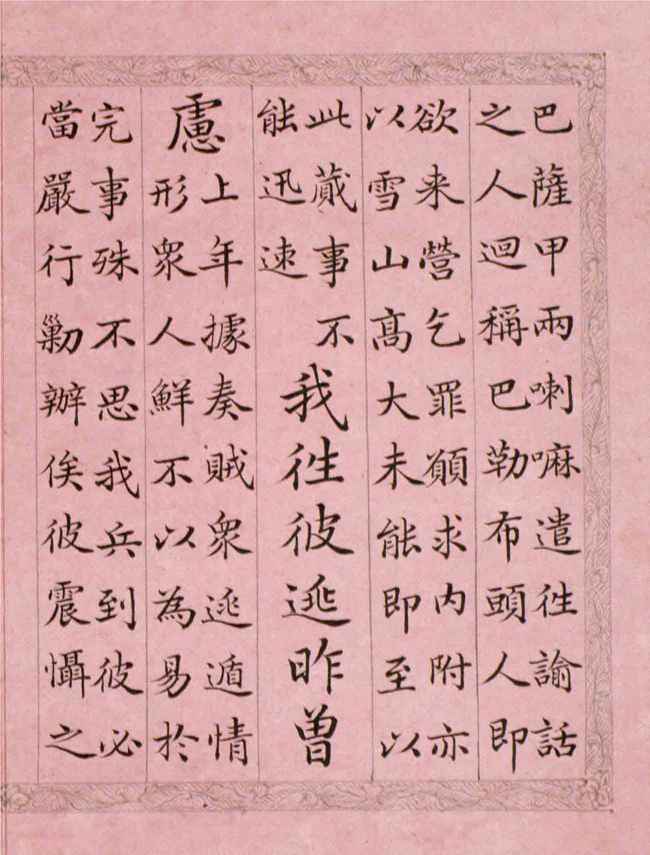 巴薩甲兩喇嘛遣徃諭話
之人迴稱巴勒布頭人即
欲来營乞罪願求内附亦
以雪山髙大未能即至以
此蕆事不
能迅速
我徃彼逃昨曾
慮
上年據奏賊衆逃遁情
形衆人鮮不以為易於
完事殊不思我兵到彼必
當嚴行勦辦俟彼震懾之